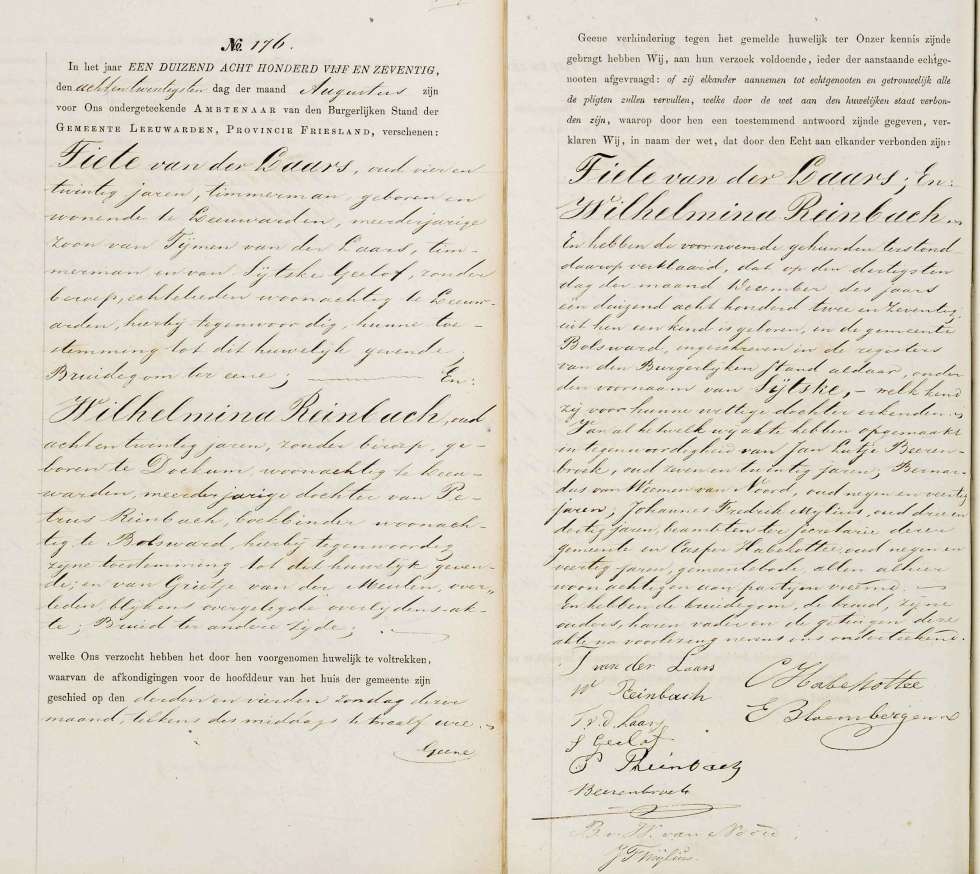 No. 176.
In het jaar EEN DUIZEND ACHT HONDERD VIJF EN ZEVENTIG,
den achtentwintigsten dag der maand Augustus zijn
voor Ons ondergeteekende AMBTENAAR van den Burgerlijken Stand der
GEMEENTE LEEUWARDEN, PROVINCIE FRIESLAND, verschenen:
Fiete van der Laars, oud vier en
twintig jaren, timmerman, geboren en
wonende te Leeuwarden, meerderjarige
zoon van Tijmen van der Laars, tim-
merman en van Sijtske Geelof, zonder
beroep, echtelieden woonachtig te Leeuw-
arden, hierbij tegenwoordig, hunne toe-
stemming tot dit huwelijk gevende,
Bruidegom ter eene; En:
Wilhelmina Reinbach, oud
acht en twintig jaren, zonder beroep, ge-
boren te Dockum, woonachtig te Leeu-
warden, meerderjarige dochter van Pe-
trus Reinbach, boekbinder woonach-
tig te Bolsward, hierbij tegenwoordig
zijne toestemming tot dit huwelijk geven-
de; en van Grietje van der Meulen, over-
leden, blijkens overgelegde overlijdens-ak-
te; Bruid ter andere zijde;
welke Ons verzocht hebben het door hen voorgenomen huwelijk te voltrekken,
waarvan de afkondigingen voor de hoofddeur van het huis der gemeente zijn
geschied op den derden en vierden zondag dezer
maand, telkens des middags te twaalf ure.
Geene
Geene verhindering tegen het gemelde huwelijk ter Onzer kennis zijnde
gebragt hebben Wij, aan hun verzoek voldoende, ieder der aanstaande echtge-
nooten afgevraagd: of zij elkander aannemen tot echtgenooten en getrouwelijk alle
de pligten zullen vervullen, welke door de wet aan den huwelijken staat verbon-
den zijn, waarop door hen een toestemmend antwoord zijnde gegeven, ver-
klaren Wij, in naam der wet, dat door den Echt aan elkander verbonden zijn:
Fiete van der Laars; En:
Wilhelmina Reinbach.
En hebben de voornoemde gehuwden terstond
daarop verklaard, dat op den dertigsten
dag der maand December des jaars
een duizend acht honderd twee en zeventig
uit hen een kind is geboren, en de gemeente
Bolsward, ingeschreven in de registers
van den Burgerlijken Stand aldaar, onder
den voornaam van Sijtske, - welk kind
zij voor hunne wettige dochter erkenden.
Van al hetwelk wij akte hebben opgemaakt
in tegenwoordigheid van Jan Lutje Beeren-
broek, oud zeven en twintig jaren, Bernar-
dus van Weemen van Noord, oud negen en veertig
jaren, Johannes Fredrik Mylius, oud drie en
dertig jaren, beambten ter secretarie dezer
gemeente en Casper Habekottee, oud negen en
veertig jaren, gemeentebode, allen alhier
woonachtig en aan partijen vreemd.
En hebben de bruidegom, de bruid, zijne
ouders, haren vader en de getuigen deze
akte na voorlezing nevens ons onderteekend.
T van der Laars
W Reinbach
T. v. d. Laars
S Geelof
P Rheinbach
Beerenbroek
B. v. W. van Noord
J F Mylius.
C Habekottee
E Bloembergen